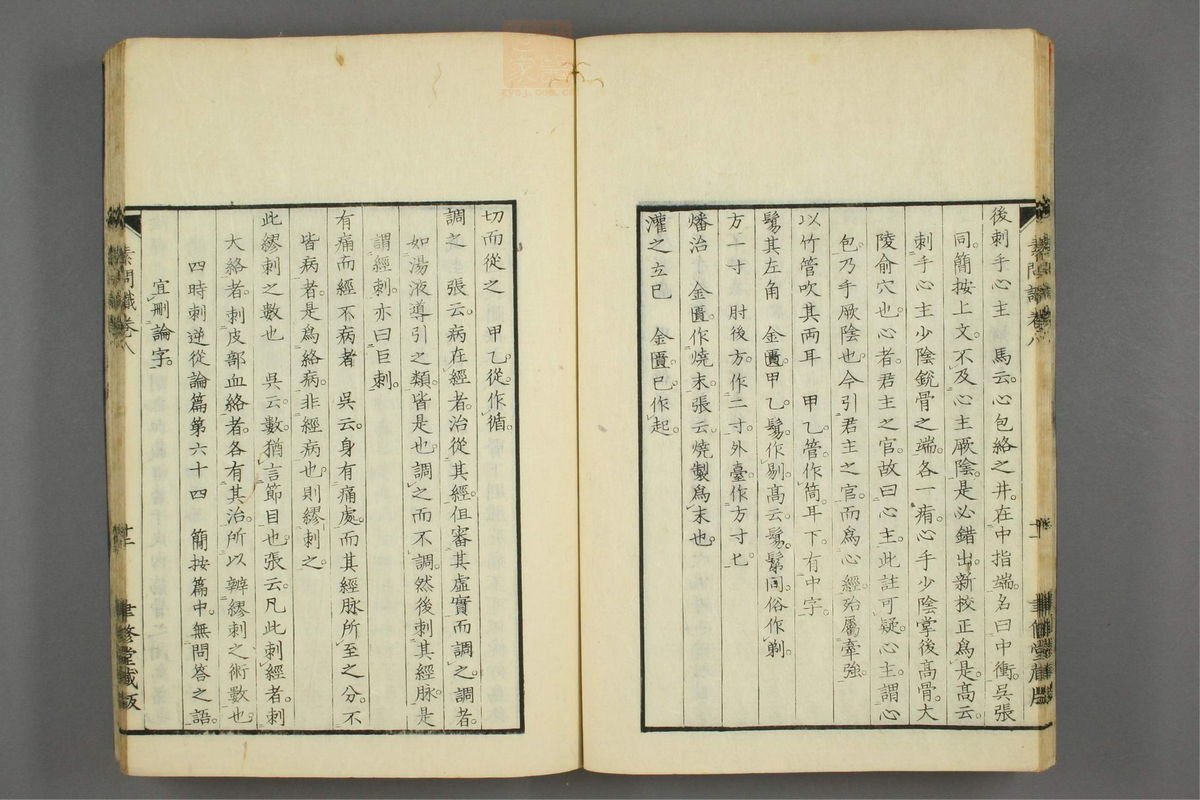 後刺手心主　馬云。心包絡之井。在中指端。名曰中衝。吳張
同。簡按上文。不及心主厥陰。是必錯出。新校正爲是。高云。
刺手心主少陰銳骨之端。各一痏。心手少陰掌後高骨。大
陵俞穴也。心者。君主之官。故曰心主。此註可疑。心主。謂心
包。乃手厥陰也。今引君主之官。而爲心經。殆屬牽強。
以竹管吹其兩耳　甲乙管作筒。耳下有中字。
鬄其左角　金匱甲乙。鬄作剔。高云。鬄鬀同。俗作剃。
方一寸　肘後方。作二寸。外臺。作方寸匕
燔治　金匱。作燒末。張云。燒製爲末也。
灌之立已　金匱。已作起。
切而從之　甲乙。從作循。
調之　張云。病在經者。治從其經。但審其虛實而調之。調者。
如湯液導引之類。皆是也。調之而不調。然後刺其經脉。是
謂經刺。亦曰巨刺。
有痛而經不病者　吳云。身有痛處。而其經脉所至之分。不
皆病者。是爲絡病。非經病也。則繆刺之。
此繆刺之數也　吳云。數。猶言節目也。張云。凡此刺經者。刺
大絡者。刺皮部血絡者。各有其治。所以辨繆刺之術數也。
四時刺逆從論篇第六十四　簡按篇中。無問答之語。
宜刪論字。
素問識卷八
十二
聿修堂藏版